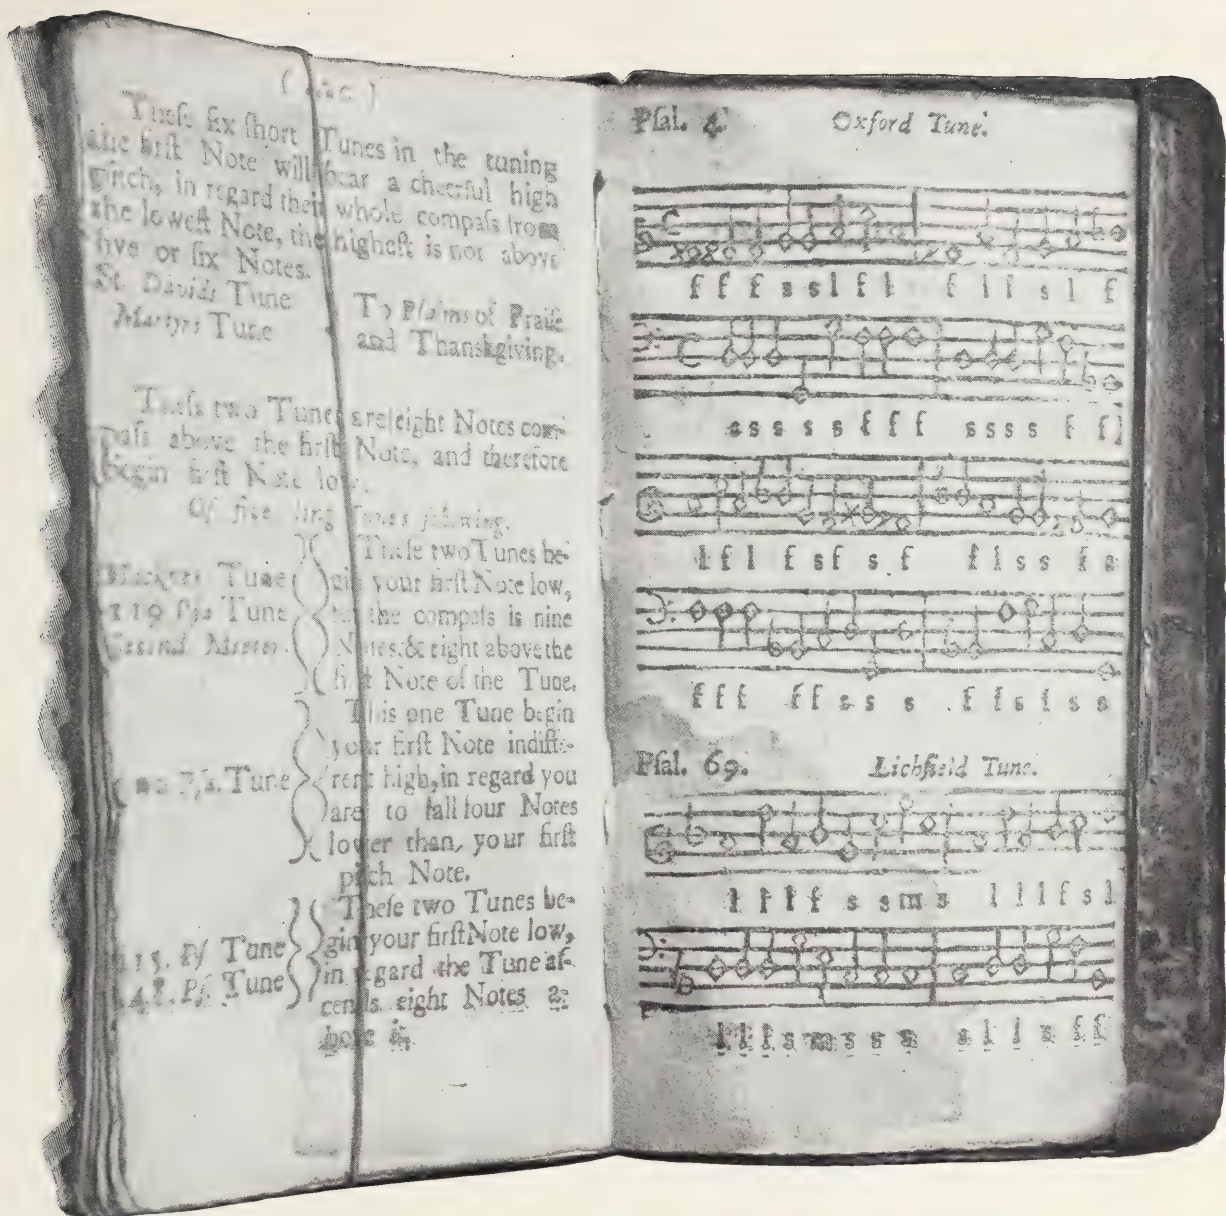 Theſe ſix ſhort Tunes in the tuning
the firſt Note will bear a cheerful high
pitch, in regard their whole compaſs from
the loweſt Note, the higheſt is not above
five or ſix Notes.
St. Davids Tune
Martyrs Tune
To Pſalms of Praiſe
and Thanskgiving.
Theſe two Tunes are eight Notes com-
paſs above the firſt Note, and therefore
begin firſt Note low.
Of five long Tunes following.
Tune
119 Pſ. Tune
Second Meeter.
Theſe two Tunes be-
gin your firſt Note low,
the compaſs is nine
Notes, & eight above the
firſt Note of the Tune.
Tune
This one Tune begin
your firſt Note indiffe-
rent high, in regard you
are to fall four Notes
lower than, your firſt
pitch Note.
Pſ Tune
Pſ. Tune
Theſe two Tunes be-
gin your firſt Note low,
in regard the Tune aſ-
cends eight Notes a-
bove it.
Pſal. 4. Oxford Tune.
f f f s s l f l f l f s l f
s s s s s f f f s s s s f f
l f l f s f s f f l s s f s
f f f f f s s s f f s f s s
Pſal. 69. Lichfield Tune.
l f f f s s m s l l l f s l
l l f s m s s s s l l s f f